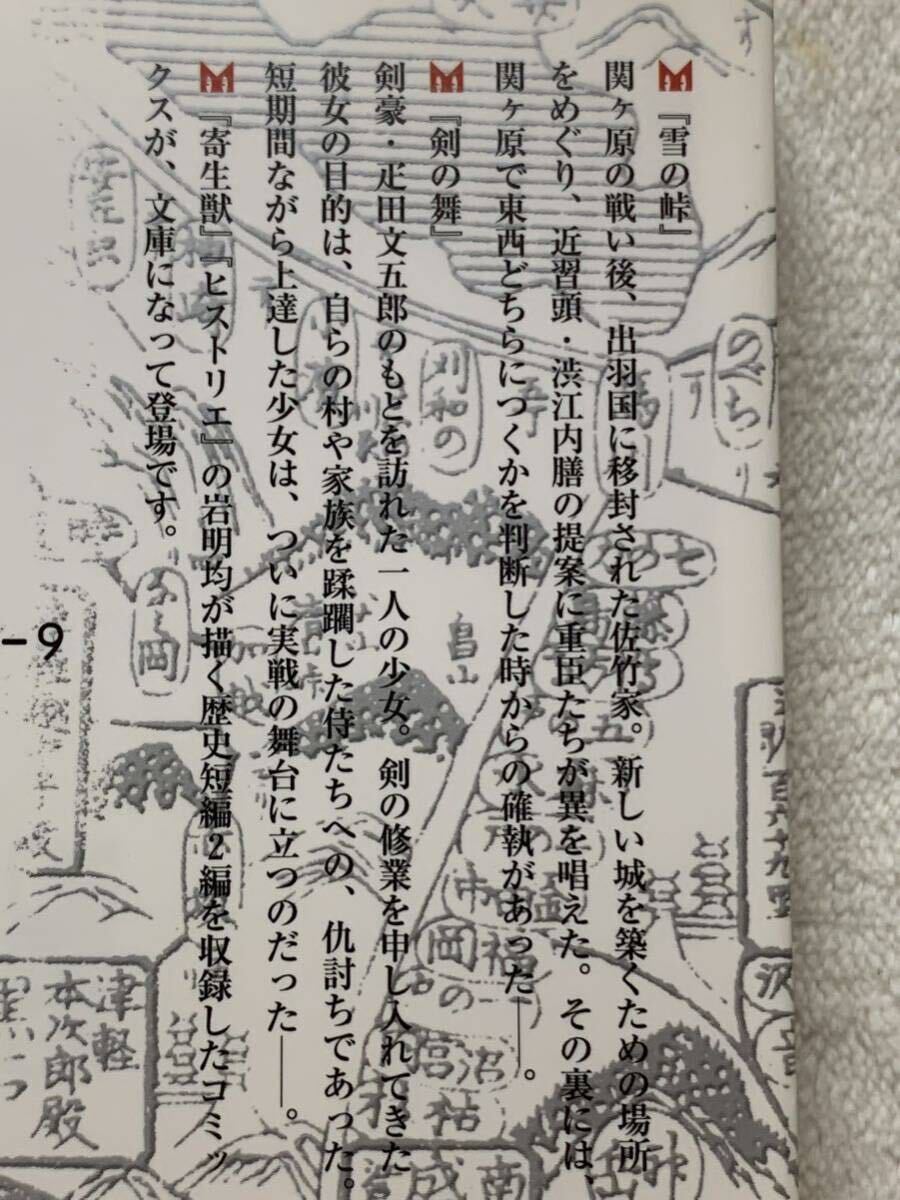 『雪の峠』
関ヶ原の戦い後、出羽国に移封された佐竹家。新しい城を築くための場所
をめぐり、近習頭・渋江内膳の提案に重臣たちが異を唱えた。その裏には、
関ヶ原で東西どちらにつくかを判断した時からの確執があった――。
『剣の舞』
剣豪・疋田文五郎のもとを訪れた一人の少女。剣の修業を申し入れてきた
彼女の目的は、自らの村や家族を蹂躙した侍たちへの、仇討ちであった。
短期間ながら上達した少女は、ついに実戦の舞台に立つのだった――。
『寄生獣』『ヒストリエ』の岩明均が描く歴史短編2編を収録したコミッ
クスが、文庫になって登場です。
-9
刈和の
畠山
岡
津軽
本次郎殿